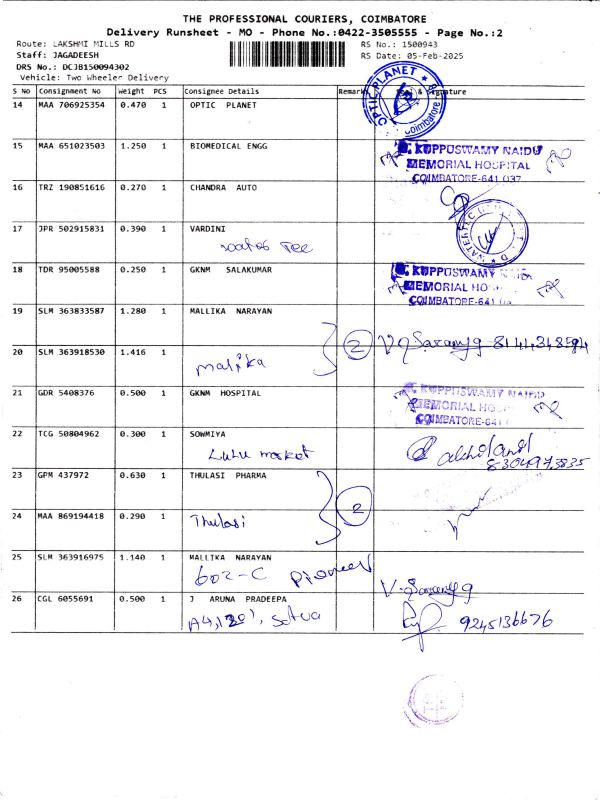 THE PROFESSIONAL COURIERS, COIMBATORE
Delivery Runsheet - MO - Phone No.:0422-3505555 - Page No.:2
Route: LAKSHMI MILLS RD
RS No.: 1500943
Staff: JAGADEESH
RS Date: 05-Feb-2025
DRS No.: DCJB150094302
Vehicle: Two Wheeler Delivery
S No Consignment No Weight PCS Consignee Details Remark & Signature
14 MAA 706925354 0.470 1 OPTIC PLANET
OPTIC PLANET Coimbatore
15 MAA 651023503 1.250 1 BIOMEDICAL ENGG
G. KUPPUSWAMY NAIDU
MEMORIAL HOSPITAL
COIMBATORE-641 037
16 TRZ 190851616 0.270 1 CHANDRA AUTO
17 JPR 502915831 0.390 1 VARDINI
18 TDR 95005588 0.250 1 GKNM SALAKUMAR
G. KUPPUSWAMY NAIDU
MEMORIAL
COIMBATORE-641
19 SLM 363833587 1.280 1 MALLIKA NARAYAN
2
20 SLM 363918530 1.416 1
malika
21 GDR 5408376 0.500 1 GKNM HOSPITAL
G. KUPPUSWAMY NAIDU
MEMORIAL
COIMBATORE-641
22 TCG 50804962 0.300 1 SOWMIYA
Lulu market
23 GPM 437972 0.630 1 THULASI PHARMA
2
24 MAA 869194418 0.290 1
Thulasi
25 SLM 363916975 1.140 1 MALLIKA NARAYAN
602-C Pioneer
26 CGL 6055691 0.500 1 J ARUNA PRADEEPA
9245136676